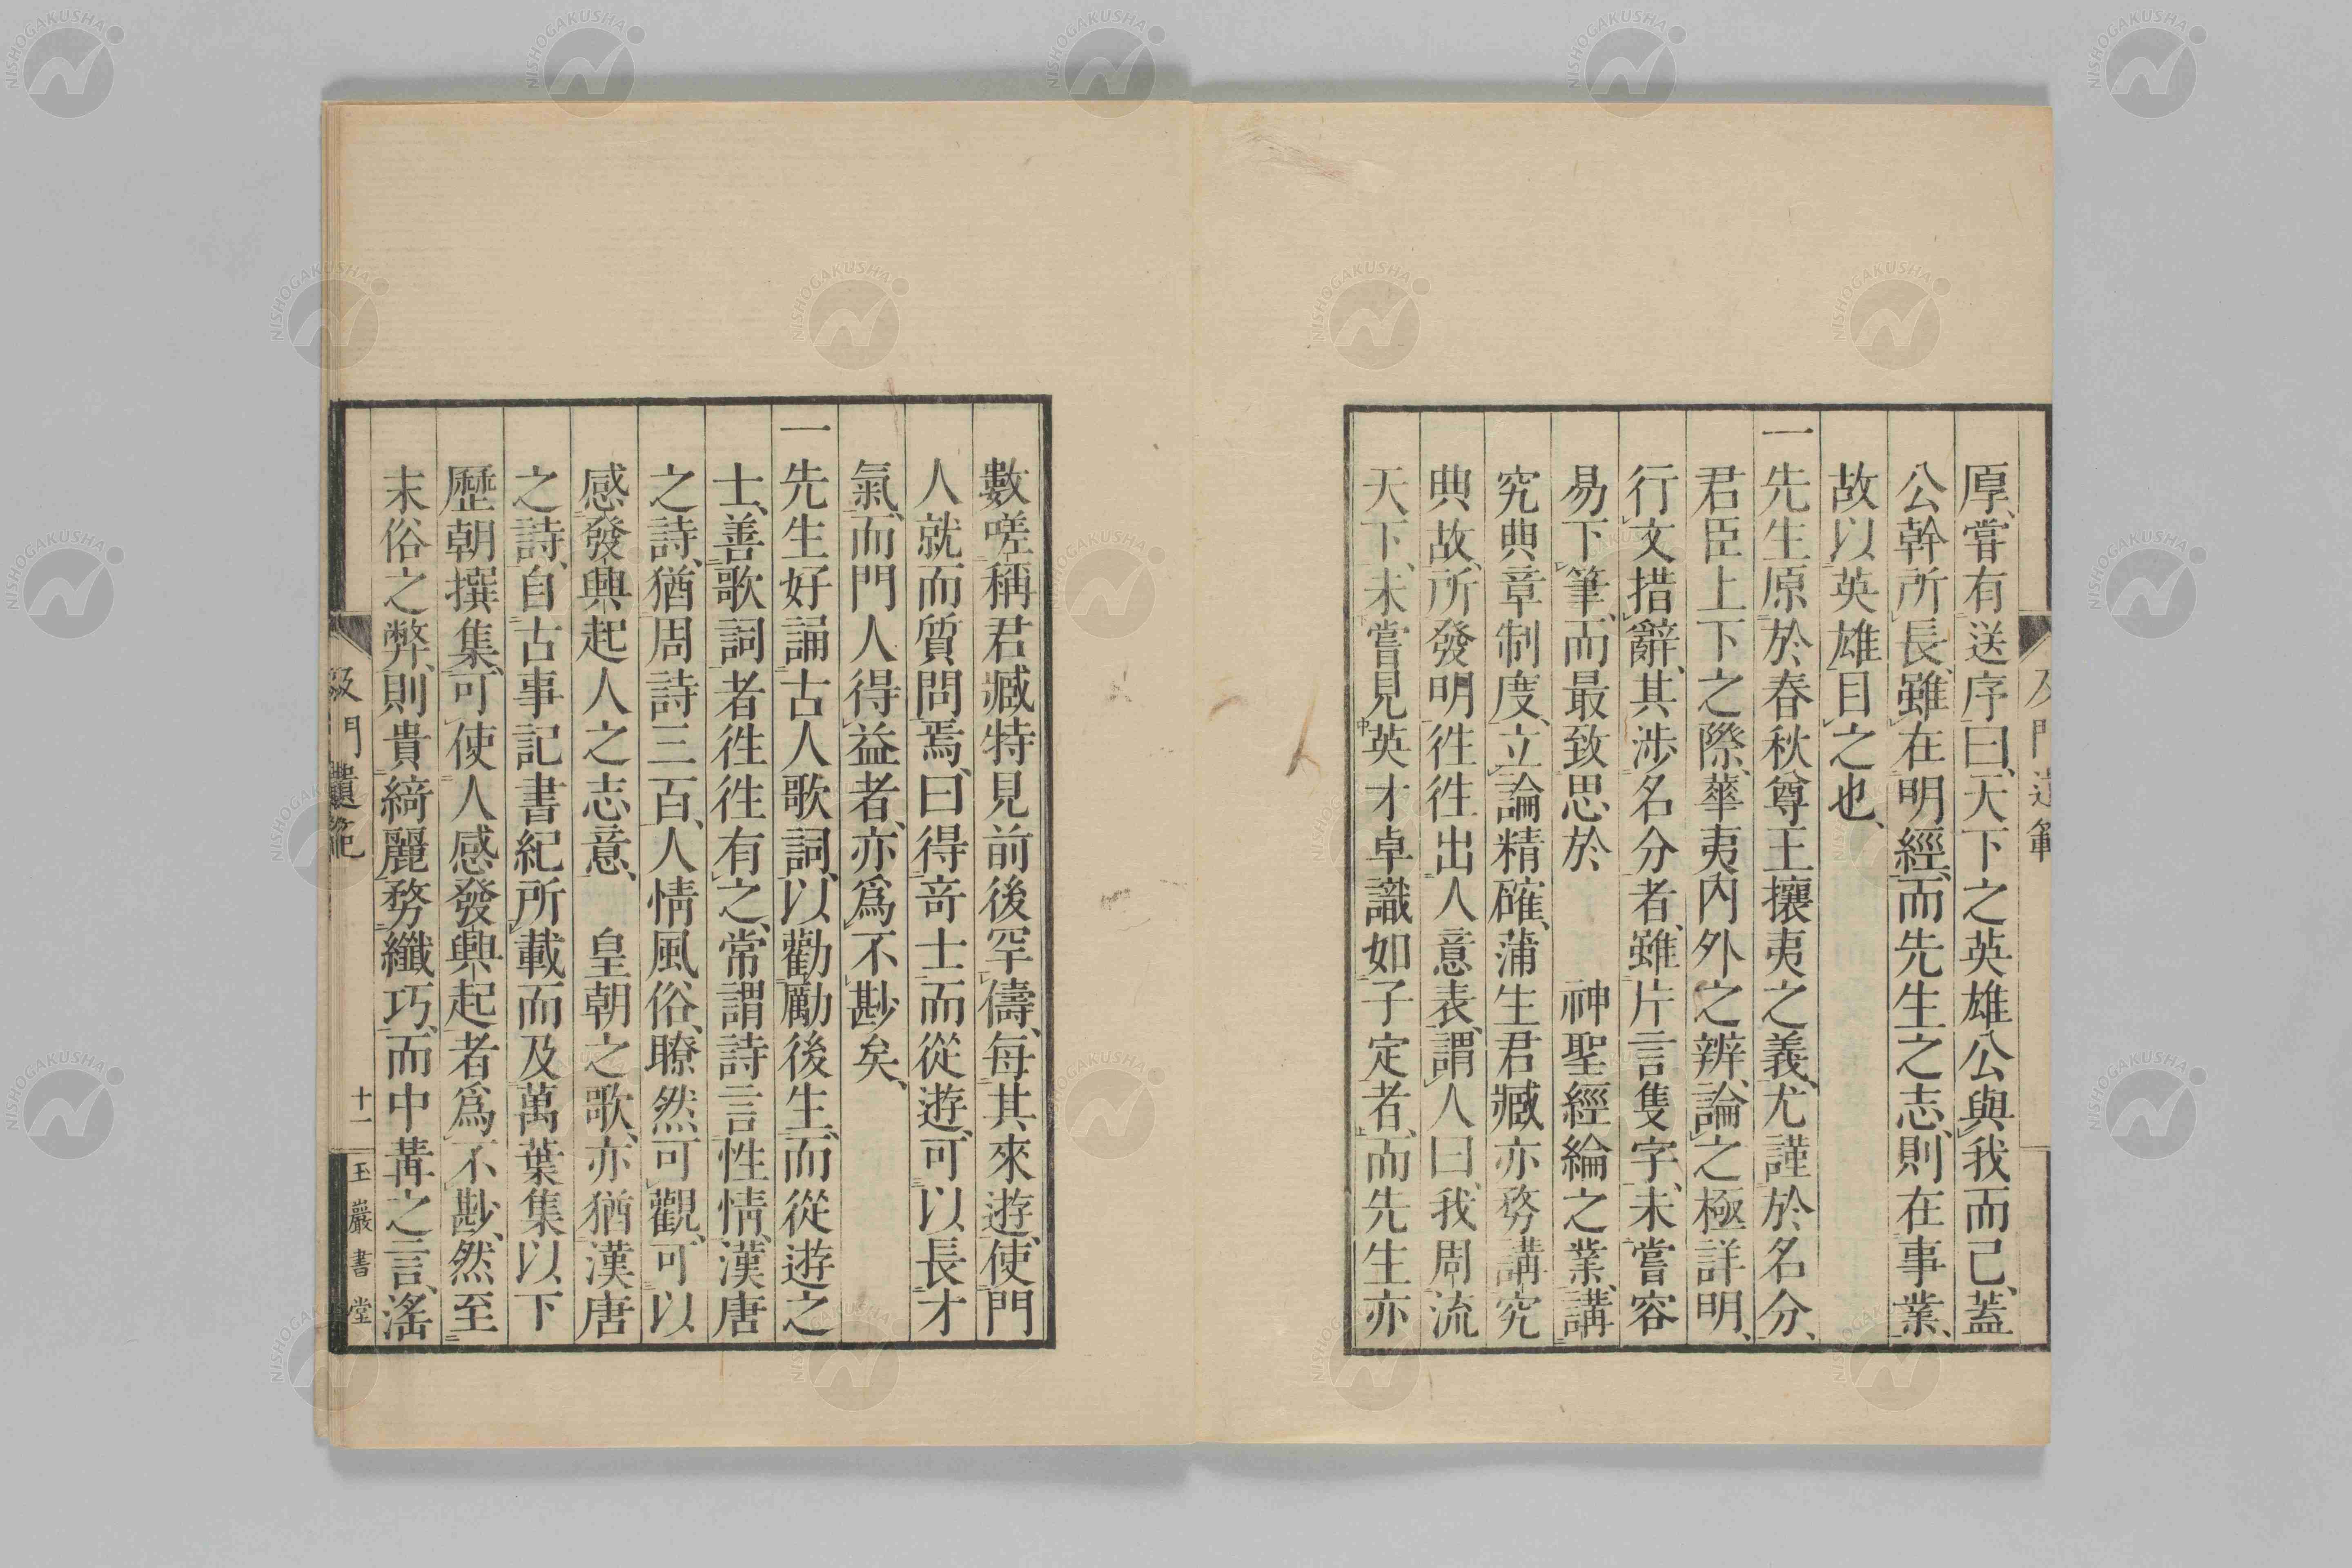 厚、嘗有送序曰、天下之英雄公與我而已、蓋
公幹所長、雖在明經、而先生之志、則在事業、
故以英雄目之也、
一先生原於春秋尊王攘夷之義、尤謹於名分、
君臣上下之際、華夷內外之辨、論之極詳明、
行文措辭、其涉名分者、雖片言隻字、未嘗容
易下筆、而最致思於　神聖經綸之業、講
究典章制度、立論精確、蒲生君臧亦務講究
典故、所發明徃徃出人意表、謂人曰、我周流
天下、未嘗見英才卓識如子定者、而先生亦
數嗟稱君臧特見前後罕儔、每其來遊、使門
人就而質問焉、曰得奇士而從遊、可以長才
氣、而門人得益者、亦爲不尠矣、
一先生好誦古人歌詞、以勸勵後生、而從遊之
士、善歌詞者徃徃有之、常謂詩言性情、漢唐
之詩、猶周詩三百、人情風俗、瞭然可觀、可以
感發興起人之志意、　皇朝之歌、亦猶漢唐
之詩、自古事記書紀所載而及萬葉集以下
歷朝撰集、可使人感發興起者爲不尠、然至
末俗之弊、則貴綺麗務纖巧、而中冓之言、滛
及門遺範
十一
玉巖書堂
NISHOGAKUSHA